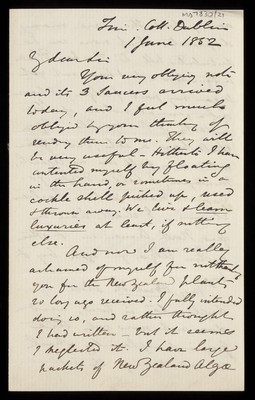 Trin. Coll. Dublin
1 June 1852
My dear Sir
Your very obliging note
and its 3 Saucers arrived
today, and I feel much
obliged by your thinking of
sending them to me. They will
be very useful - Hitherto I have
contented myself by floating
in the hand, or sometimes in a
cockle shell picked up, used
& thrown away. We live & learn
luxuries at least, if nothing
else.
And now I am really
ashamed of myself for not thankg
you for the New Zealand plants
so long ago received. I fully intended
doing so, and rather thought
I had written - but it seems
I neglected it. I have large
packets of New Zealand Algæ